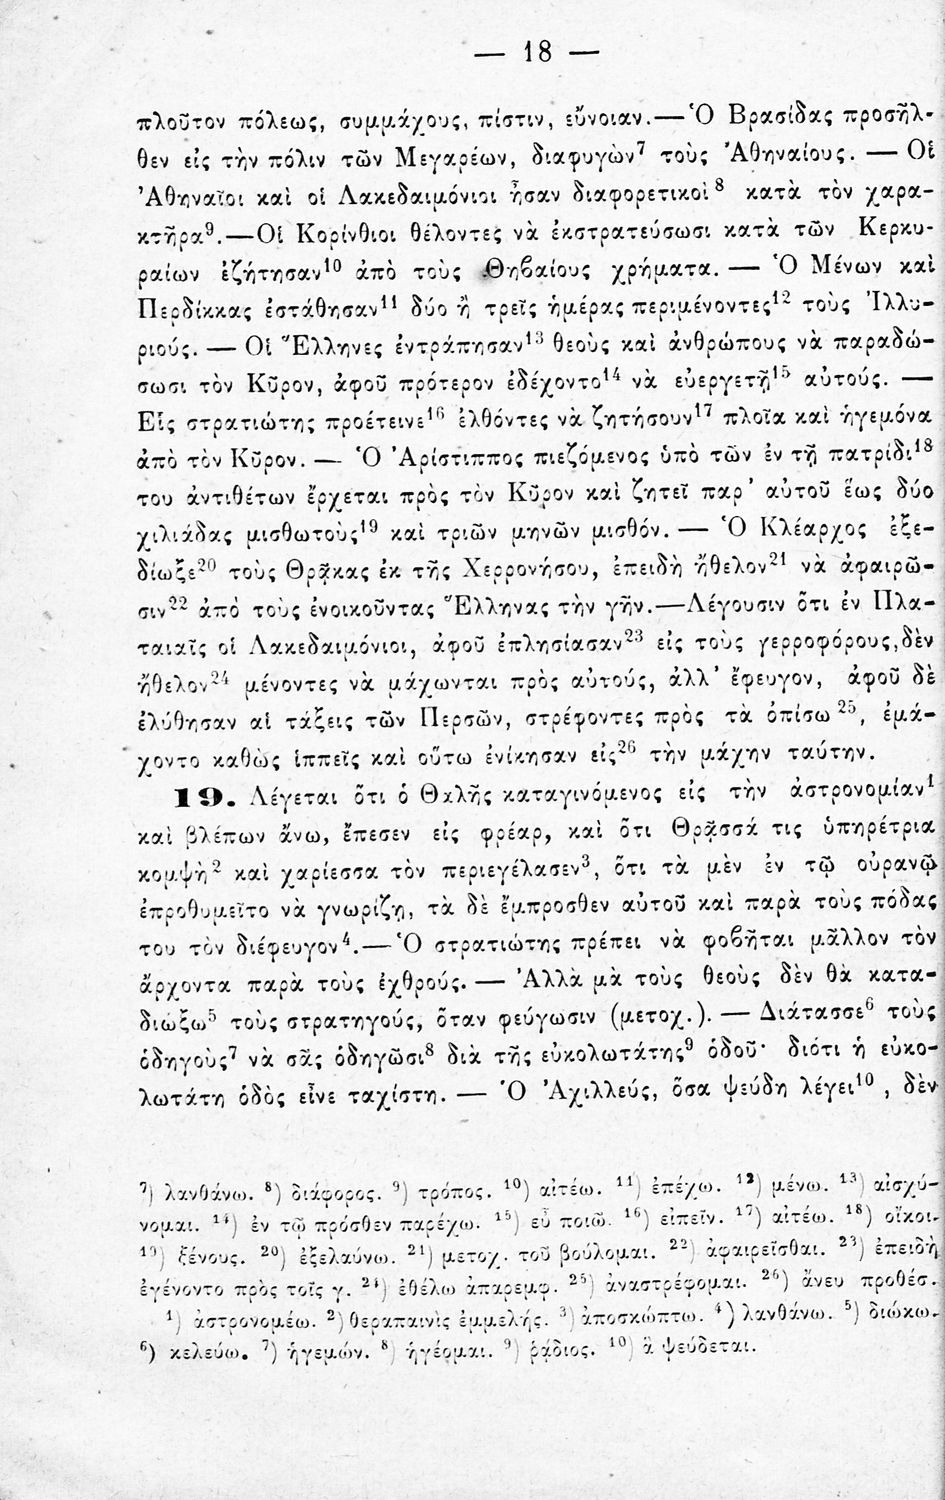 — 18 —
πλοῦτον πόλεως, συμμάχους, πίστιν, εὔνοιαν.—Ὁ Βρασίδας προσῆλ-
θεν εἰς τὴν πόλιν τῶν Μεγαρέων, διαφυγὼν⁷ τοὺς Ἀθηναίους. — Οἱ
Ἀθηναῖοι καὶ οἱ Λακεδαιμόνιοι ἦσαν διαφορετικοὶ⁸ κατὰ τὸν χαρα-
κτῆρα⁹.—Οἱ Κορίνθιοι θέλοντες νὰ ἐκστρατεύσωσι κατὰ τῶν Κερκυ-
ραίων ἐζήτησαν¹⁰ ἀπὸ τοὺς Θηβαίους χρήματα. — Ὁ Μένων καὶ
Περδίκκας ἐστάθησαν¹¹ δύο ἢ τρεῖς ἡμέρας περιμένοντες¹² τοὺς Ἰλλυ-
ριούς. — Οἱ Ἕλληνες ἐντράπησαν¹³ θεοὺς καὶ ἀνθρώπους νὰ παραδώ-
σωσι τὸν Κῦρον, ἀφοῦ πρότερον ἐδέχοντο¹⁴ νὰ εὐεργετῇ¹⁵ αὐτούς. —
Εἷς στρατιώτης προέτεινε¹⁶ ἐλθόντες νὰ ζητήσουν¹⁷ πλοῖα καὶ ἡγεμόνα
ἀπὸ τὸν Κῦρον. — Ὁ Ἀρίστιππος πιεζόμενος ὑπὸ τῶν ἐν τῇ πατρίδι¹⁸
του ἀντιθέτων ἔρχεται πρὸς τὸν Κῦρον καὶ ζητεῖ παρ’ αὐτοῦ ἕως δύο
χιλιάδας μισθωτοὺς¹⁹ καὶ τριῶν μηνῶν μισθόν. — Ὁ Κλέαρχος ἐξε-
δίωξε²⁰ τοὺς Θρᾷκας ἐκ τῆς Χερρονήσου, ἐπειδὴ ἤθελον²¹ νὰ ἀφαιρῶ-
σιν²² ἀπὸ τοὺς ἐνοικοῦντας Ἕλληνας τὴν γῆν.—Λέγουσιν ὅτι ἐν Πλα-
ταιαῖς οἱ Λακεδαιμόνιοι, ἀφοῦ ἐπλησίασαν²³ εἰς τοὺς γερροφόρους,δὲν
ἤθελον²⁴ μένοντες νὰ μάχωνται πρὸς αὐτούς, ἀλλ’ ἔφευγον, ἀφοῦ δὲ
ἐλύθησαν αἱ τάξεις τῶν Περσῶν, στρέφοντες πρὸς τὰ ὀπίσω ²⁵, ἐμά-
χοντο καθὼς ἱππεῖς καὶ οὕτω ἐνίκησαν εἰς²⁶ τὴν μάχην ταύτην.
19. Λέγεται ὅτι ὁ Θαλῆς καταγινόμενος εἰς τὴν ἀστρονομίαν¹
καὶ βλέπων ἄνω, ἔπεσεν εἰς φρέαρ, καὶ ὅτι Θρᾷσσά τις ὑπηρέτρια
κομψὴ² καὶ χαρίεσσα τὸν περιεγέλασεν³, ὅτι τὰ μὲν ἐν τῷ οὐρανῷ
ἐπροθυμεῖτο νὰ γνωρίζῃ, τὰ δὲ ἔμπροσθεν αὐτοῦ καὶ παρὰ τοὺς πόδας
του τὸν διέφευγον⁴.—Ὁ στρατιώτης πρέπει νὰ φοβῆται μᾶλλον τὸν
ἄρχοντα παρὰ τοὺς ἐχθρούς. — Ἀλλὰ μὰ τοὺς θεοὺς δὲν θὰ κατα-
διώξω⁵ τοὺς στρατηγούς, ὅταν φεύγωσιν (μετοχ.). — Διάτασσε⁶ τοὺς
ὁδηγοὺς⁷ νὰ σᾶς ὁδηγῶσι⁸ διὰ τῆς εὐκολωτάτης⁹ ὁδοῦ· διότι ἡ εὐκο-
λωτάτη ὁδὸς εἶνε ταχίστη. — Ὁ Ἀχιλλεύς, ὅσα ψεύδη λέγει¹⁰ , δὲν
⁷) λανθάνω. ⁸) διάφορος. ⁹) τρόπος. ¹⁰) αἰτέω. ¹¹) ἐπέχω. ¹²) μένω. ¹³) αἰσχύ-
νομαι. ¹⁴) ἐν τῷ πρόσθεν παρέχω. ¹⁵) εὖ ποιῶ. ¹⁶) εἰπεῖν. ¹⁷) αἰτέω. ¹⁸) οἴκοι.
¹⁹) ξένους. ²⁰) ἐξελαύνω. ²¹) μετοχ. τοῦ βούλομαι. ²²) ἀφαιρεῖσθαι. ²³) ἐπειδὴ
ἐγένοντο πρὸς τοῖς γ. ²⁴) ἐθέλω ἀπαρεμφ. ²⁵) ἀναστρέφομαι. ²⁶) ἄνευ προθέσ.
¹) ἀστρονομέω. ²) θεραπαινὶς ἐμμελής. ³) ἀποσκώπτω. ⁴) λανθάνω. ⁵) διώκω.
⁶) κελεύω. ⁷) ἡγεμών. ⁸) ἡγέομαι. ⁹) ῥᾴδιος. ¹⁰) ἃ ψεύδεται.